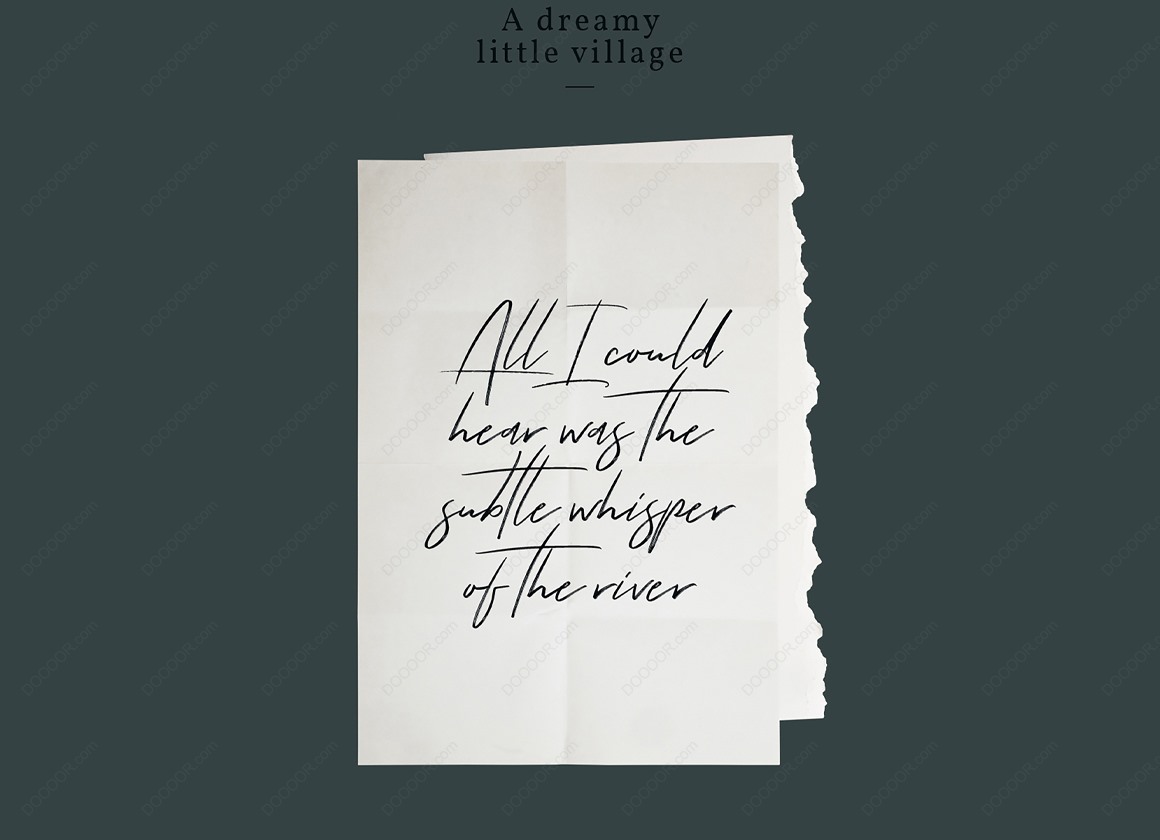 A dreamy
little village
All I could
hear was the
subtle whisper
of the river
DOOOOR.com